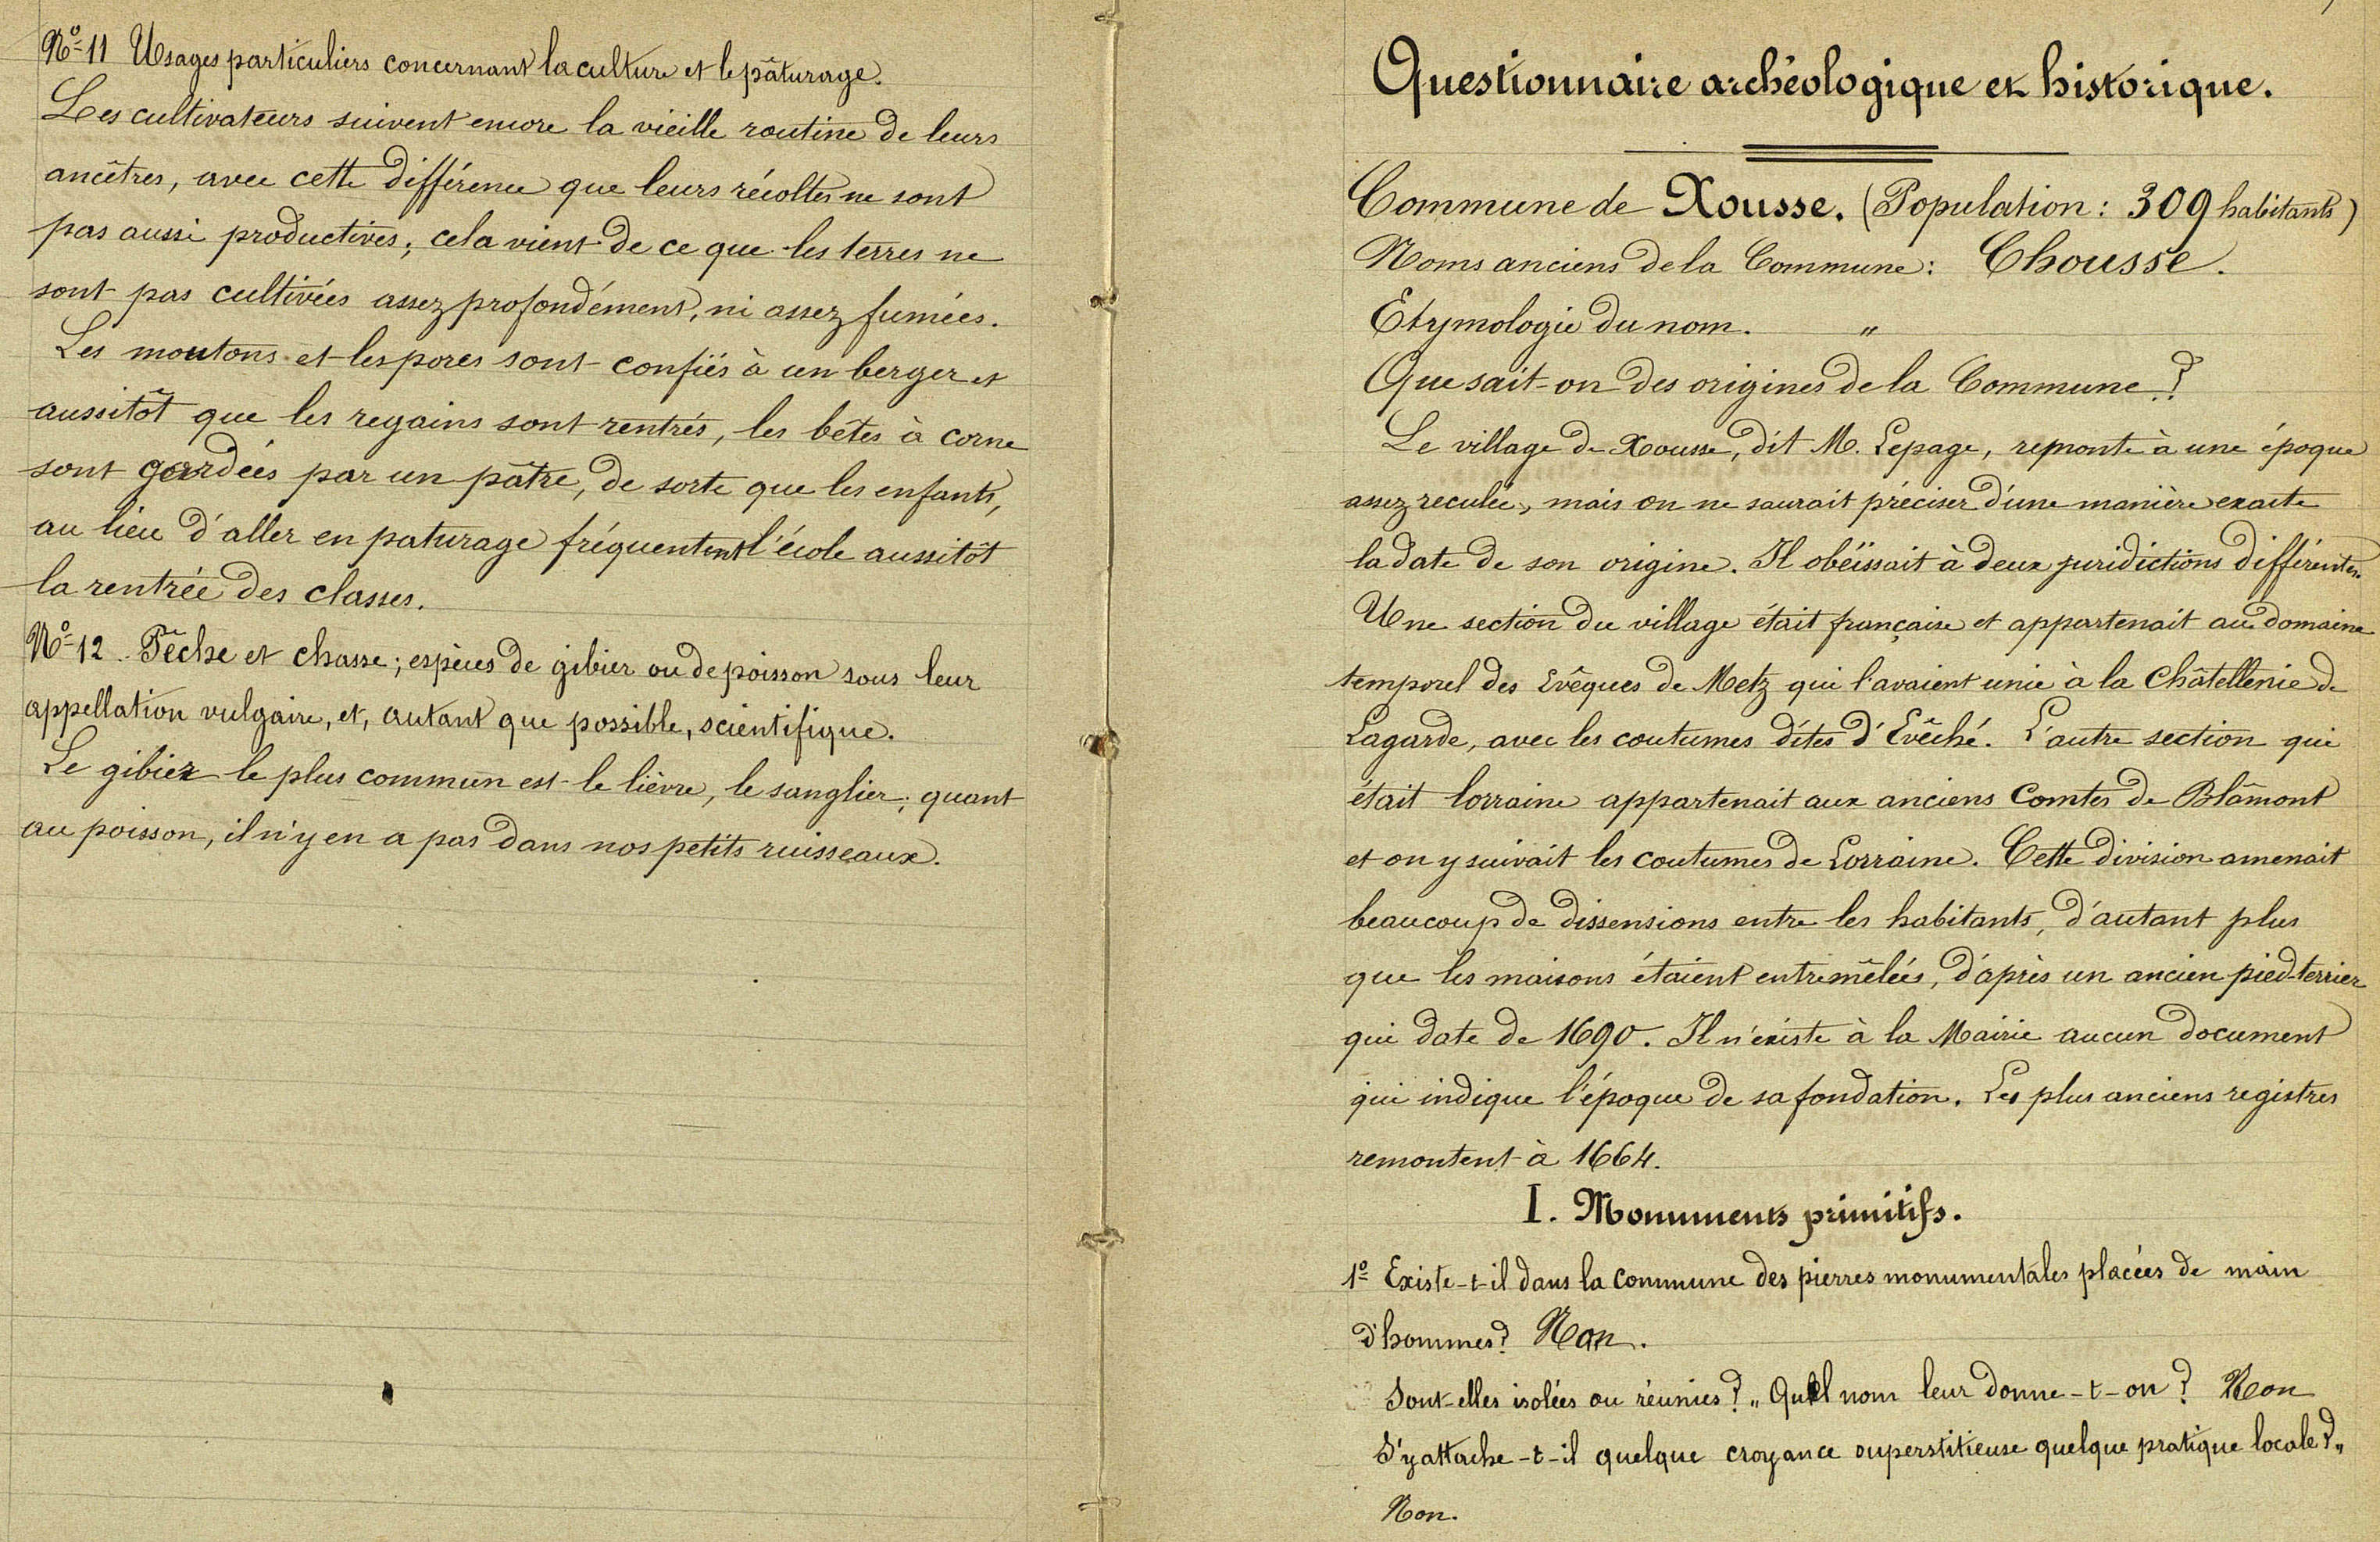 Nº 11 Usages particuliers concernant la culture et le pâturage.
Les cultivateurs suivent encore la vieille routine de leurs
ancêtres, avec cette différence que leurs récoltes ne sont
pas aussi productives; cela vient de ce que les terres ne
sont pas cultivées assez profondément, ni assez fumées.
Les moutons et les porcs sont confiés à un berger et
aussitôt que les regains sont rentrés, les bêtes à corne
sont gardées par un pâtre, de sorte que les enfants,
au lieu d'aller en paturage fréquentent l'école aussitôt
la rentrée des classes.
Nº 12. Pêche et chasse; espèces de gibier ou de poisson sous leur
appellation vulgaire, et, autant que possible, scientifique.
Le gibier le plus commun est le lièvre, le sanglier; quant
au poisson, il n'y en a pas dans nos petits ruisseaux.
Questionnaire archéologique et historique.
Commune de Xousse. (Population: 309 habitants)
Noms anciens de la Commune: Chousse.
Etymologie du nom. "
Que sait-on des origines de la Commune?
Le village de Xousse, dit M. Lepage, remonte à une époque
assez reculée, mais on ne saurait préciser d'une manière exacte
la date de son origine. Il obéissait à deux juridictions différentes.
Une section du village était française et appartenait au domaine
temporel des Evêques de Metz qui l'avaient unie à la Châtellenie de
Lagarde, avec les coutumes dites d'Evêché. L'autre section qui
était lorraine appartenait aux anciens Comtes de Blâmont
et on y suivait les coutumes de Lorraine. Cette division amenait
beaucoup de dissensions entre les habitants, d'autant plus
que les maisons étaient entremêlées, d'après un ancien pied-terrier
qui date de 1690. Il n'existe à la Mairie aucun document
qui indique l'époque de sa fondation. Les plus anciens registres
remontent à 1664.
I. Monuments primitifs.
1º Existe-t-il dans la commune des pierres monumentales placées de main
d'hommes? Non.
Sont-elles isolées ou réunies? " Quel nom leur donne-t-on? Non
S'y attache-t-il quelque croyance superstitieuse quelque pratique locale? "
Non.